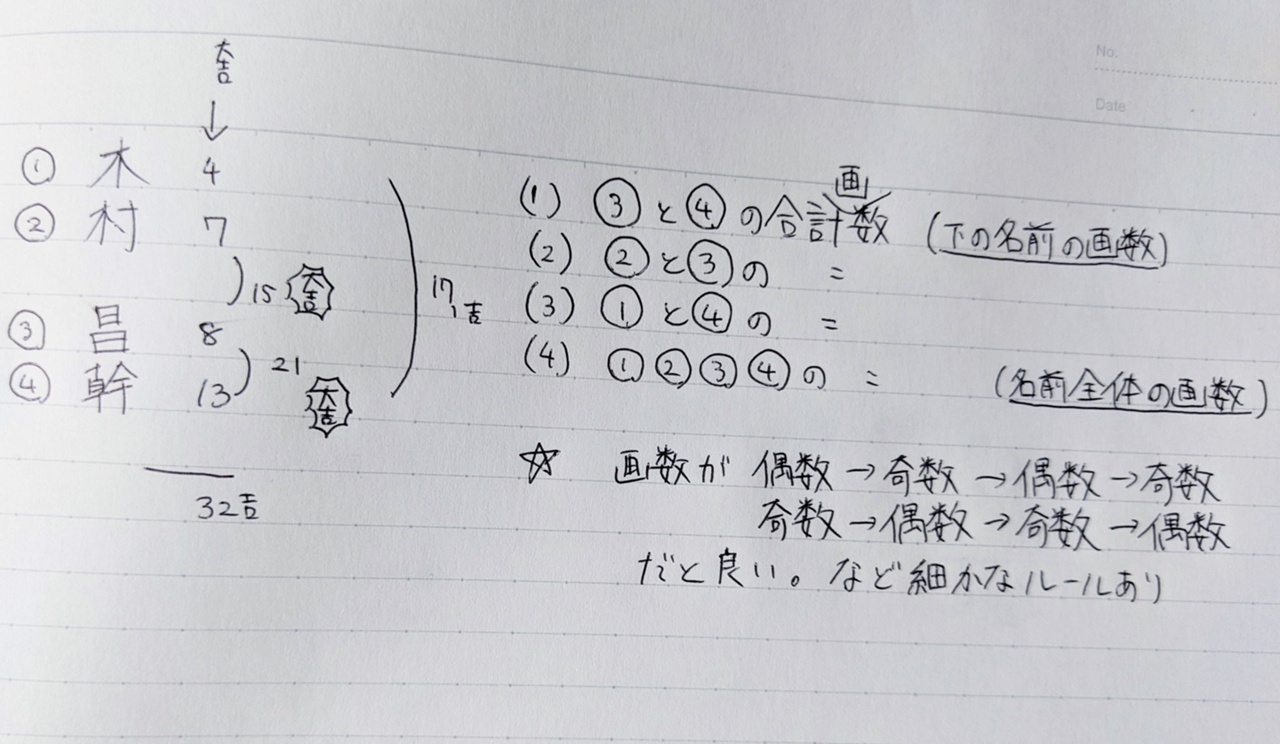 大吉
↓
① 木 4
② 村 7
)15 大吉
③ 昌 8
④ 幹 13
)21 大吉
)17,吉
32吉
(1) ③と④の合計画数 (下の名前の画数)
(2) ②と③の 〃
(3) ①と④の 〃
(4) ①②③④の 〃 (名前全体の画数)
☆ 画数が 偶数→奇数→偶数→奇数
奇数→偶数→奇数→偶数
だと良い。など細かなルールあり
No.
Date